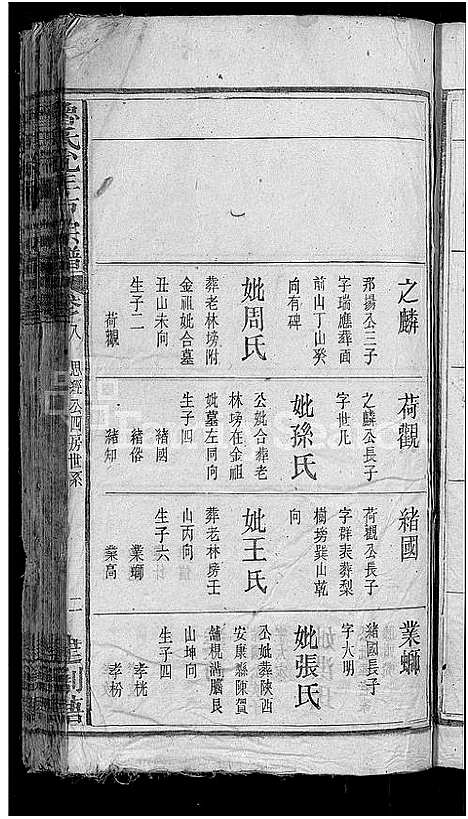 之麟
那揚公三子
字瑞應葬面
前山丁山癸
向有碑
妣周氏
葬老林塝附
金祖妣合墓
丑山未向
生子二
荷觀
荷觀
之麟公長子
字世凡
妣孫氏
公妣合葬老
林塝在金祖
妣墓左同向
生子四
緒國
緒俗
緒知
緒國
荷觀公長子
字群表葬梨
樹塝巽山乾
向
妣王氏
葬老林塝壬
山丙向
生子六
業螄
業高
業螄
緒國長子
字大明
妣張氏
公妣葬陝西
安康縣陳賀
山坤向
生子四
孝桄
孝枌
宗譜
卷之八
思經公四房世系
二